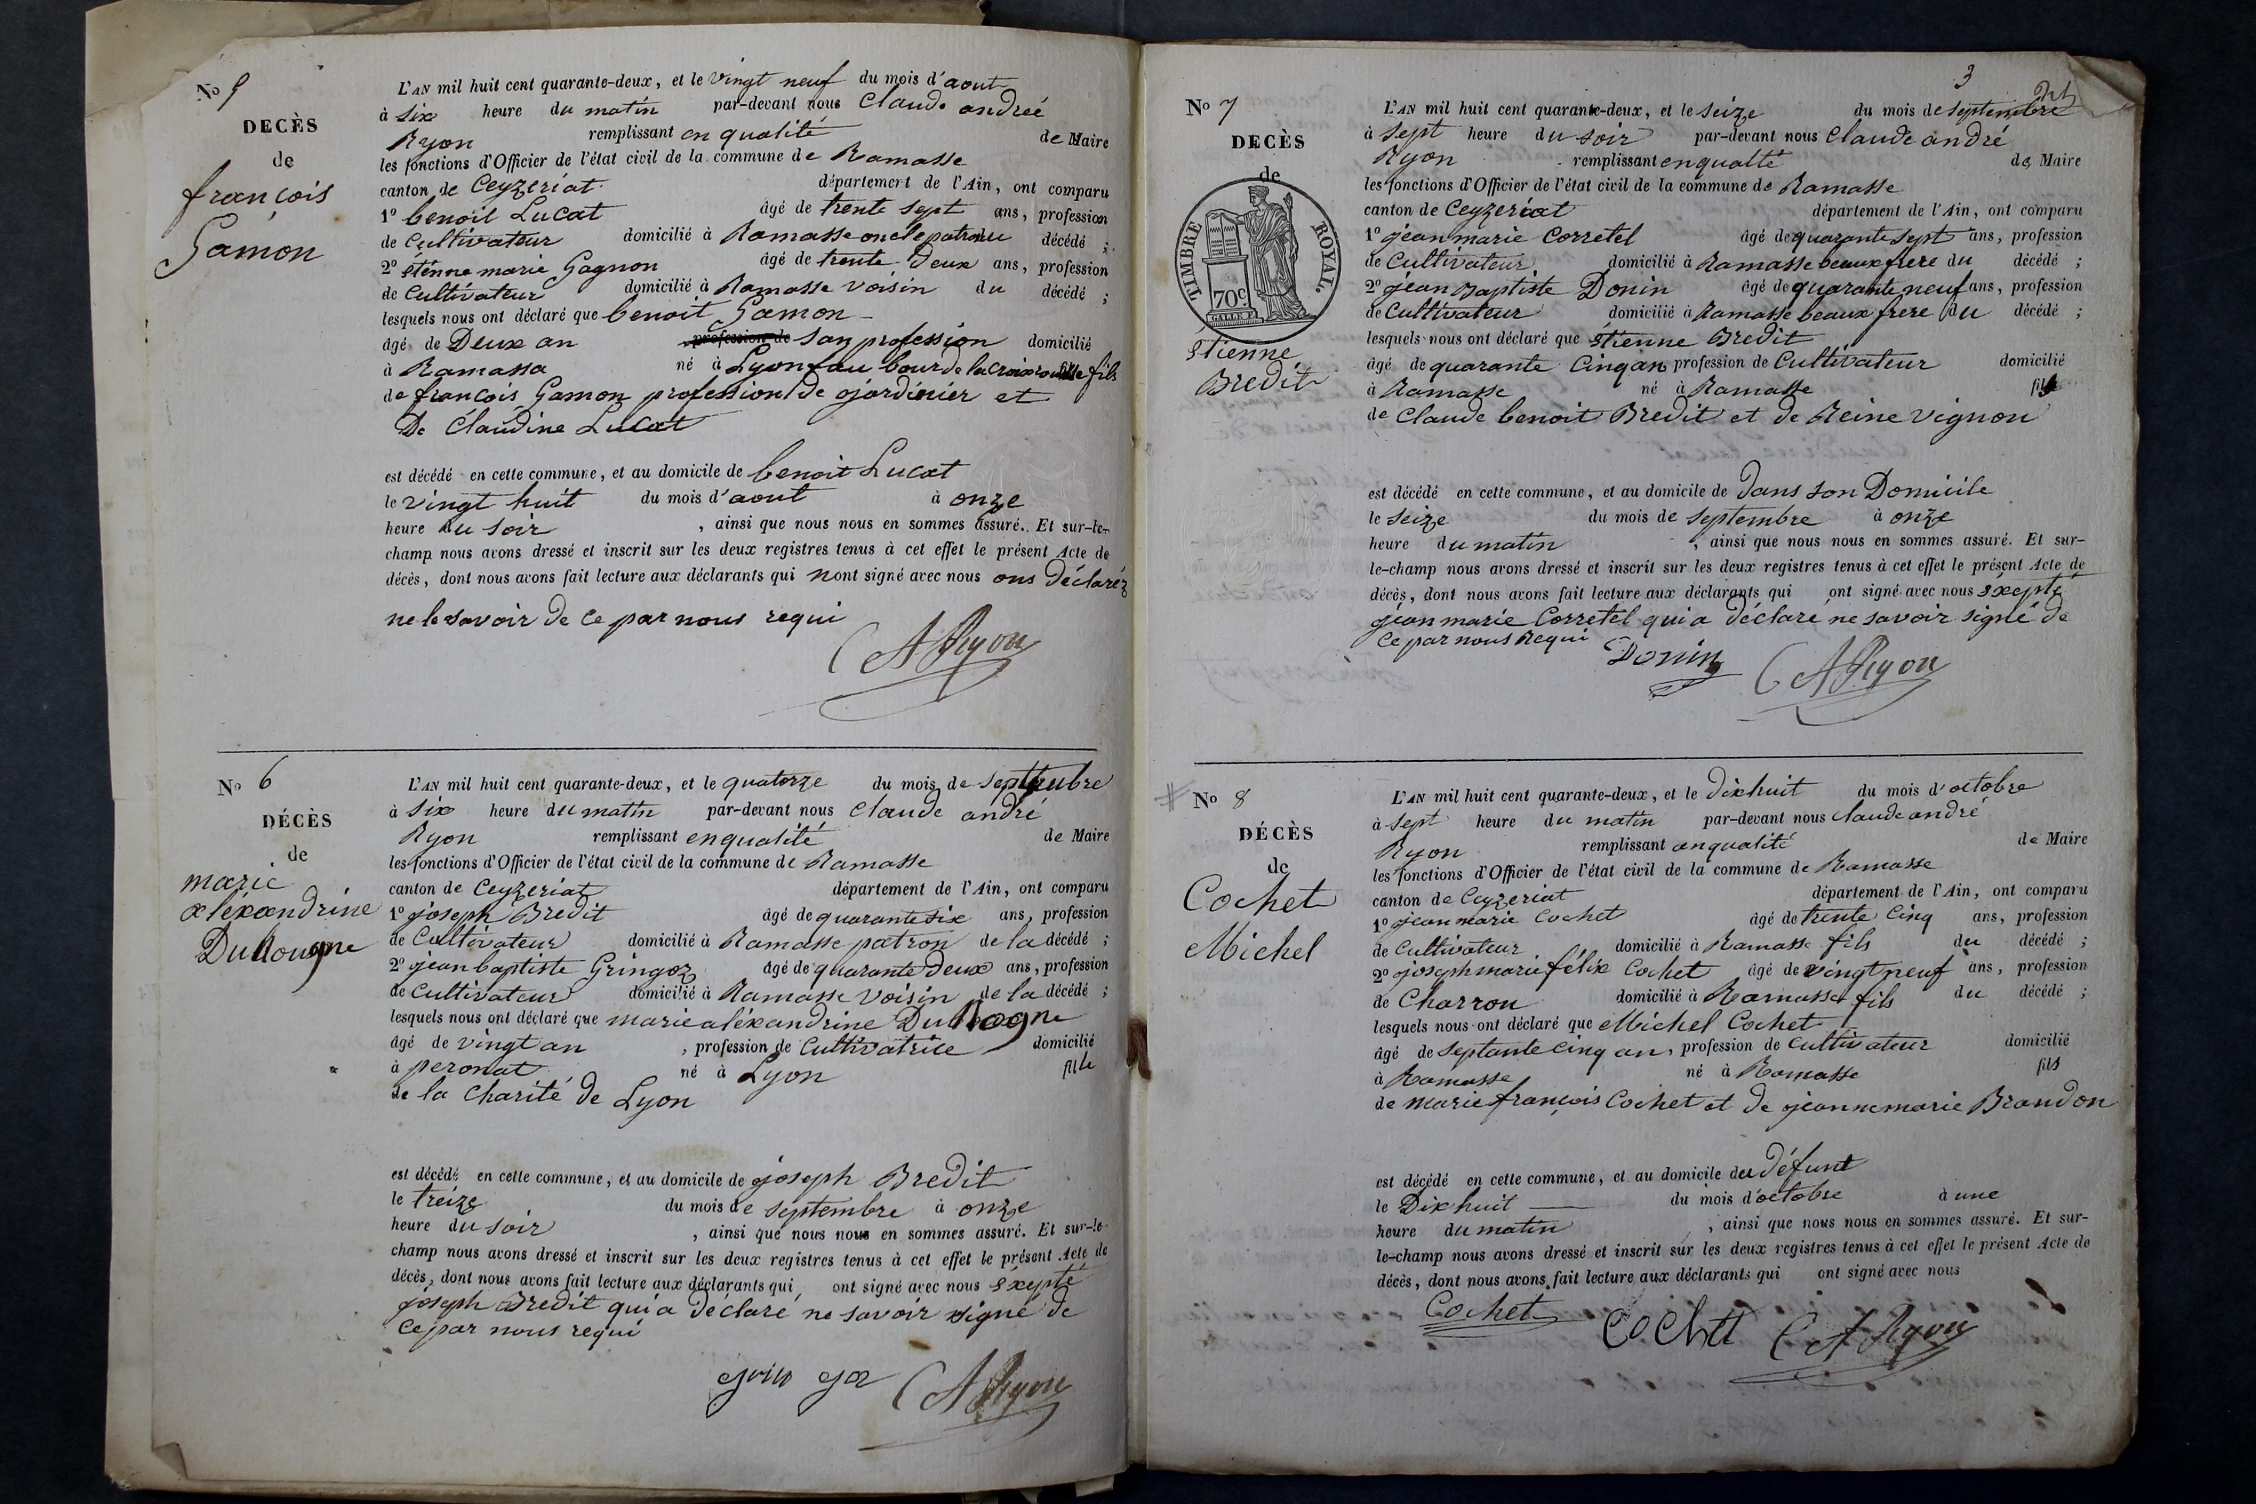 No 9
DECÈS
de
françois
Gamon
L'AN mil huit cent quarante-deux, et le vingt neuf du mois d'aout
à six heure du matin par-devant nous Claude andreé
Ryon remplissant en qualité de Maire
les fonctions d'Officier de l'état civil de la commune de Ramasse
canton de Ceyzeriat département de l'Ain, ont comparu
1o benoit Lucat âgé de trente sept ans, profession
de Cultivateur domicilié à Ramasse oncle patron du décédé ;
2o étienne marie Gagnon âgé de trente Deux ans, profession
de Cultivateur domicilié à Ramasse voisin du décédé ;
lesquels nous ont déclaré que benoit Gamon
âgé de Deux an profession de san profession domicilié
à Ramassa né à Lyon fau bour de la croix rousse fils
de françois Gamon profession de jardinier et
De Claudine Lucat
est décédé en cette commune, et au domicile de benoit Lucat
le vingt huit du mois d'aout à onze
heure du soir , ainsi que nous nous en sommes assuré. Et sur-le-
champ nous avons dressé et inscrit sur les deux registres tenus à cet effet le présent Acte de
décès, dont nous avons fait lecture aux déclarants qui nont signé avec nous ons déclaréz
ne le savoir de ce par nous requi
C A Ryon
No 6
DÉCÈS
de
marie
aléxandrine
L'AN mil huit cent quarante-deux, et le quatorze du mois de septembre
à six heure du matin par-devant nous Claude andré
Ryon remplissant en qualité de Maire
les fonctions d'Officier de l'état civil de la commune de Ramasse
canton de Ceyzeriat département de l'Ain, ont comparu
1o joseph Bredit âgé de quarante six ans, profession
de Cultivateur domicilié à Ramasse patron de la décédé ;
2o jean baptiste Gringoz âgé de quarante Deux ans, profession
de Cultivateur domicilié à Ramasse voisin de la décédé ;
lesquels nous ont déclaré que marie aléxandrine
âgé de vingt an , profession de Cultivatrice domicilié
à peronat né à Lyon fille
de la Charité de Lyon
est décédé en cette commune, et au domicile de joseph Bredit
le treize du mois de septembre à onze
heure du soir , ainsi que nous nous en sommes assuré. Et sur-le-
champ nous avons dressé et inscrit sur les deux registres tenus à cet effet le présent Acte de
décès, dont nous avons fait lecture aux déclarants qui ont signé avec nous éxepté
joseph Bredit qui a déclaré ne savoir signé de
ce par nous requi
C A Ryon
3
No 7
DECÈS
de
TIMBRE ROYAL.
70c.
étienne
Bredit
L'AN mil huit cent quarante-deux, et le seize du mois de septembre
à sept heure du soir par-devant nous Claude andré
Ryon remplissant en qualté de Maire
les fonctions d'Officier de l'état civil de la commune de Ramasse
canton de Ceyzeriat département de l'Ain, ont comparu
1o jean marie Corretel âgé de quarante sept ans, profession
de Cultivateur domicilié à Ramasse beaux frere du décédé ;
2o jean Baptiste Donin âgé de quarante neuf ans, profession
de Cultivateur domicilié à Ramasse beaux frere du décédé ;
lesquels nous ont déclaré que étienne Bredit
âgé de quarante Cinq an, profession de Cultivateur domicilié
à Ramasse né à Ramasse fils
de Claude benoit Bredit et de Reine vignon
est décédé en cette commune, et au domicile de Dans son Domicile
le seize du mois de septembre à onze
heure du matin , ainsi que nous nous en sommes assuré. Et sur-
le-champ nous avons dressé et inscrit sur les deux registres tenus à cet effet le présent Acte de
décès, dont nous avons fait lecture aux déclarants qui ont signé avec nous éxepté
jean marie Corretel qui a déclaré ne savoir signé de
Ce par nous Requi
Donin C A Ryon
No 8
DÉCÈS
de
Cochet
Michel
L'AN mil huit cent quarante-deux, et le dixhuit du mois d'octobre
à sept heure du matin par-devant nous claude andré
Ryon remplissant anqualité de Maire
les fonctions d'Officier de l'état civil de la commune de Ramasse
canton de Ceyzeriat département de l'Ain, ont comparu
1o jean marie Cochet âgé de trente Cinq ans, profession
de Cultivateur domicilié à Ramasse fils du décédé ;
2o joseph marie félix Cochet âgé de vingt neuf ans, profession
de Charron domicilié à Ramasse fils du décédé ;
lesquels nous ont déclaré que Michel Cochet
âgé de septante cinq an, profession de Cultivateur domicilié
à Ramasse né à Ramasse fils
de marie françois Cochet et de jeanne marie Brandon
est décédé en cette commune, et au domicile du Défunt
le Dix huit du mois d'octobre à une
heure du matin , ainsi que nous nous en sommes assuré. Et sur-
le-champ nous avons dressé et inscrit sur les deux registres tenus à cet effet le présent Acte de
décès, dont nous avons fait lecture aux déclarants qui ont signé avec nous
Cochet Cochet C A Ryon